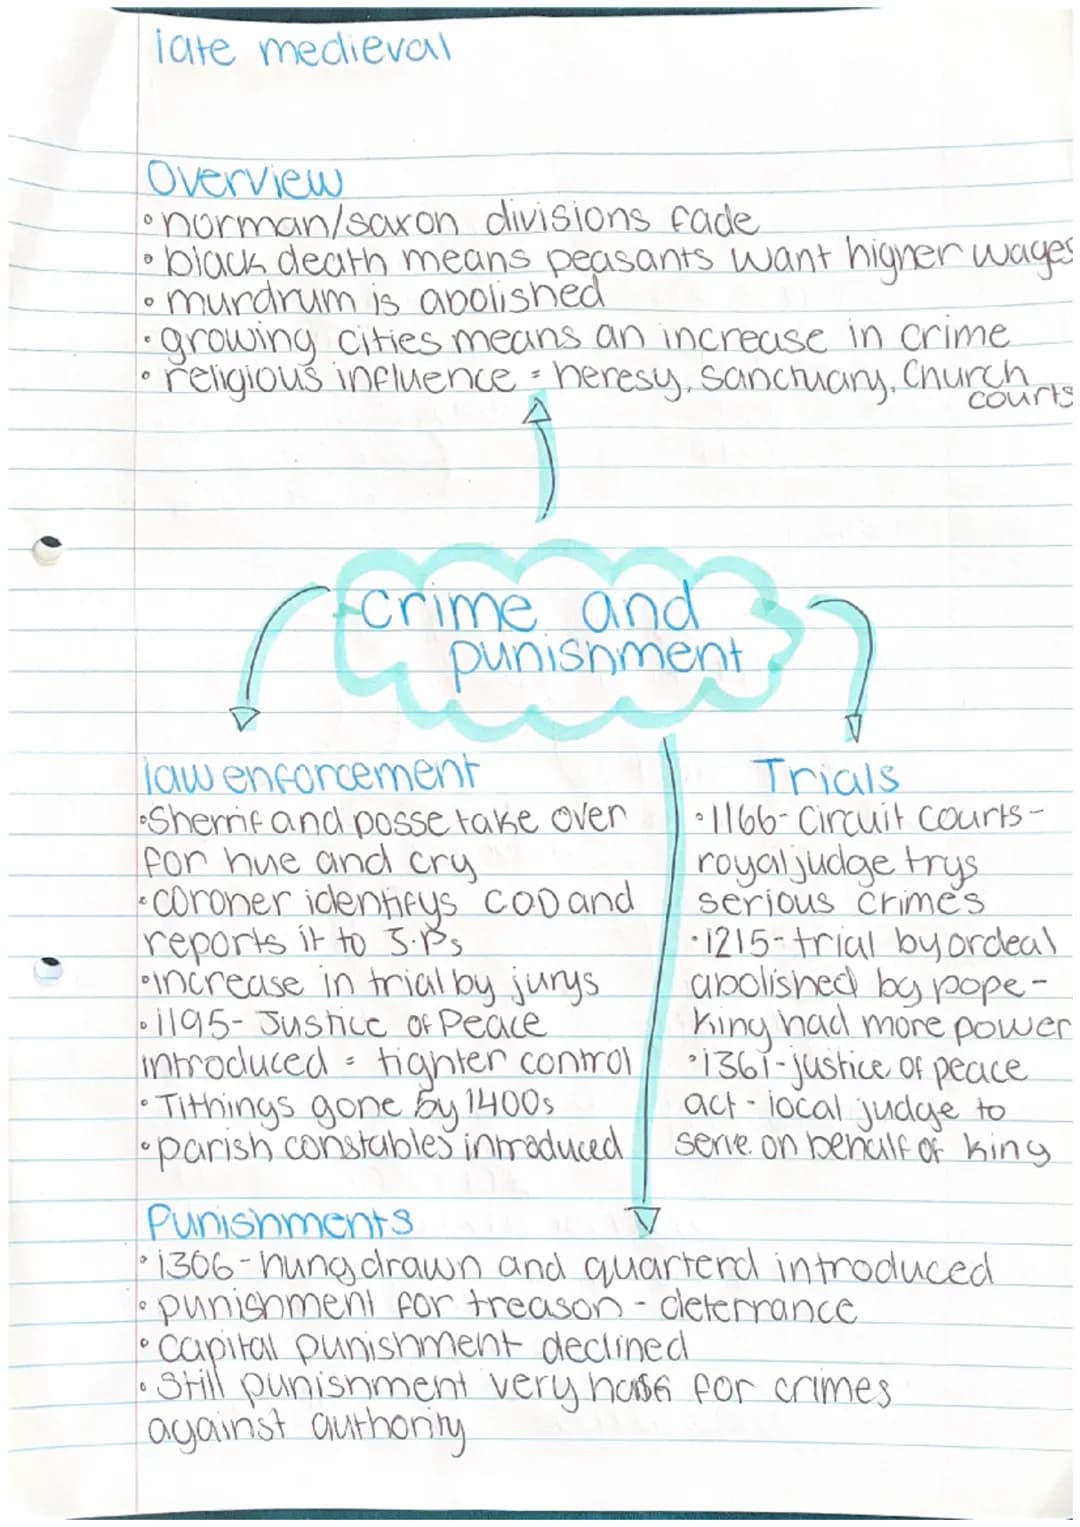 late medieval
Overview
• norman/saxon divisions fade
• black death means peasants want higher wages
• murdrum is abolished
• growing cities means an increase in crime
• religious influence = heresy, sanctuary, Church
courts
crime and
punishment
law enforcement
• Sherrif and posse take over
for hue and cry
• coroner identifys COD and
reports it to J.Ps
• increase in trial by jurys
• 1195- Justice of Peace
introduced = tighter control
• Tithings gone by 1400s
• parish constables introduced
Trials
• 1166- Circuit Courts-
royal judge trys
serious crimes
• 1215- trial by ordeal
abolished by pope-
King had more power
• 1361- justice of peace
act - local judge to
serve on behalf of king
Punishments
• 1306- hung drawn and quarterd introduced
• punishment for treason - deterrance
• capital punishment declined
• still punishment very harsh for crimes
against authority